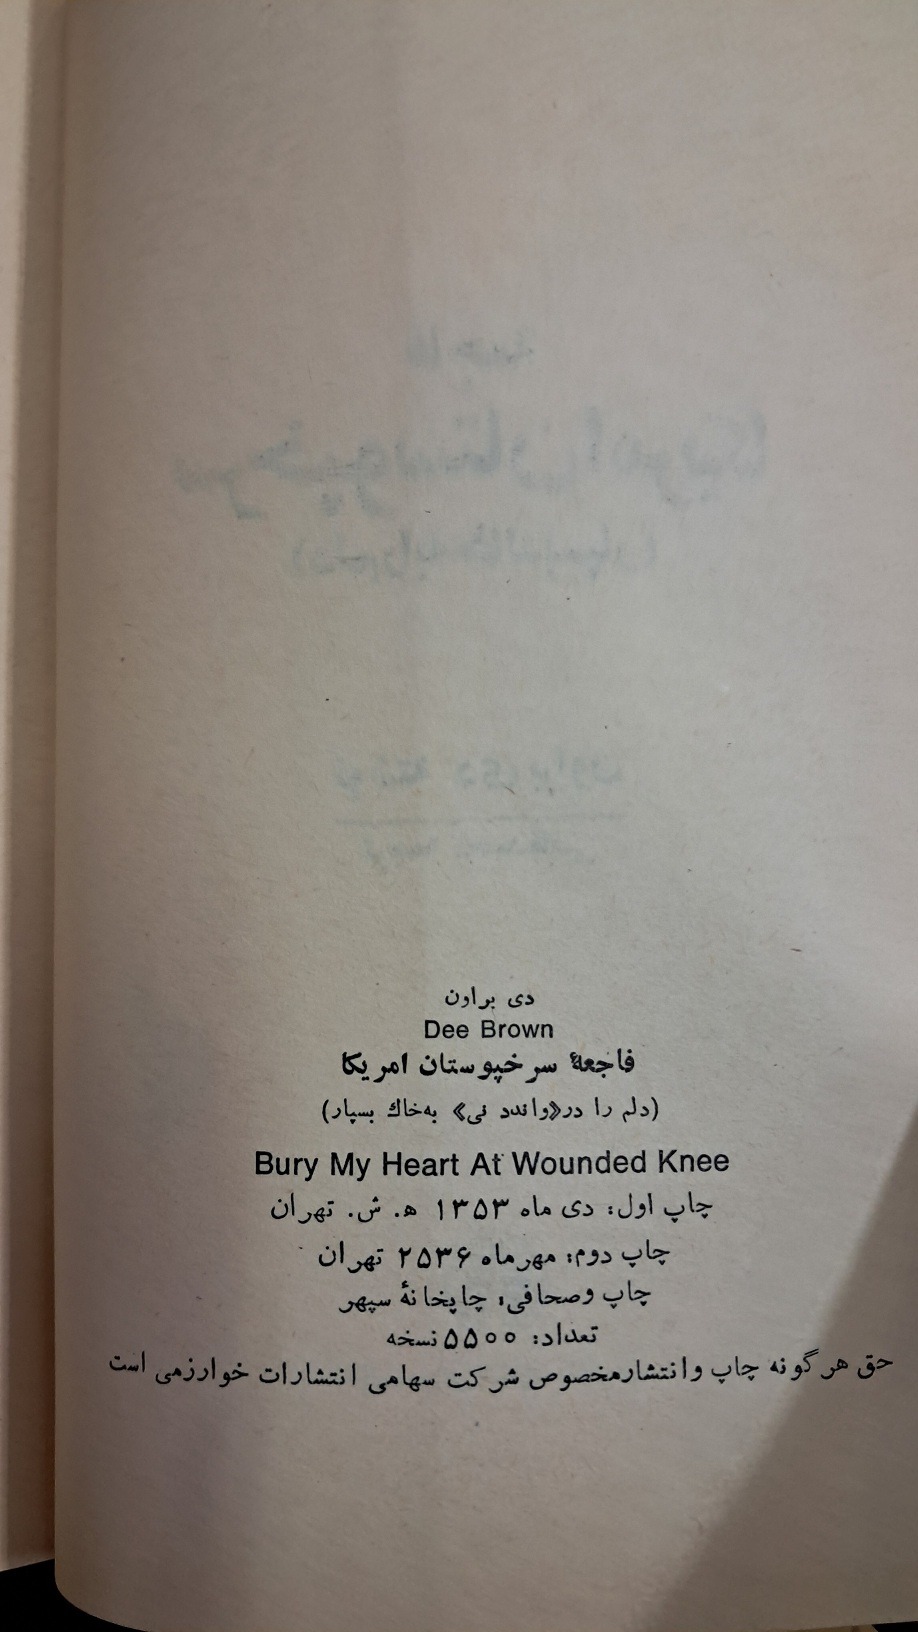 دی براون
Dee Brown
فاجعهٔ سرخپوستان امریکا
(دلم را در«واندد نی» به‌خاك بسپار)
Bury My Heart At Wounded Knee
چاپ اول: دی ماه ۱۳۵۳ ه‍. ش. تهران
چاپ دوم: مهرماه ۲۵۳۶ تهران
چاپ وصحافی: چاپخانهٔ سپهر
تعداد: ۵۵۰۰ نسخه
حق هرگونه چاپ وانتشارمخصوص شرکت سهامی انتشارات خوارزمی است